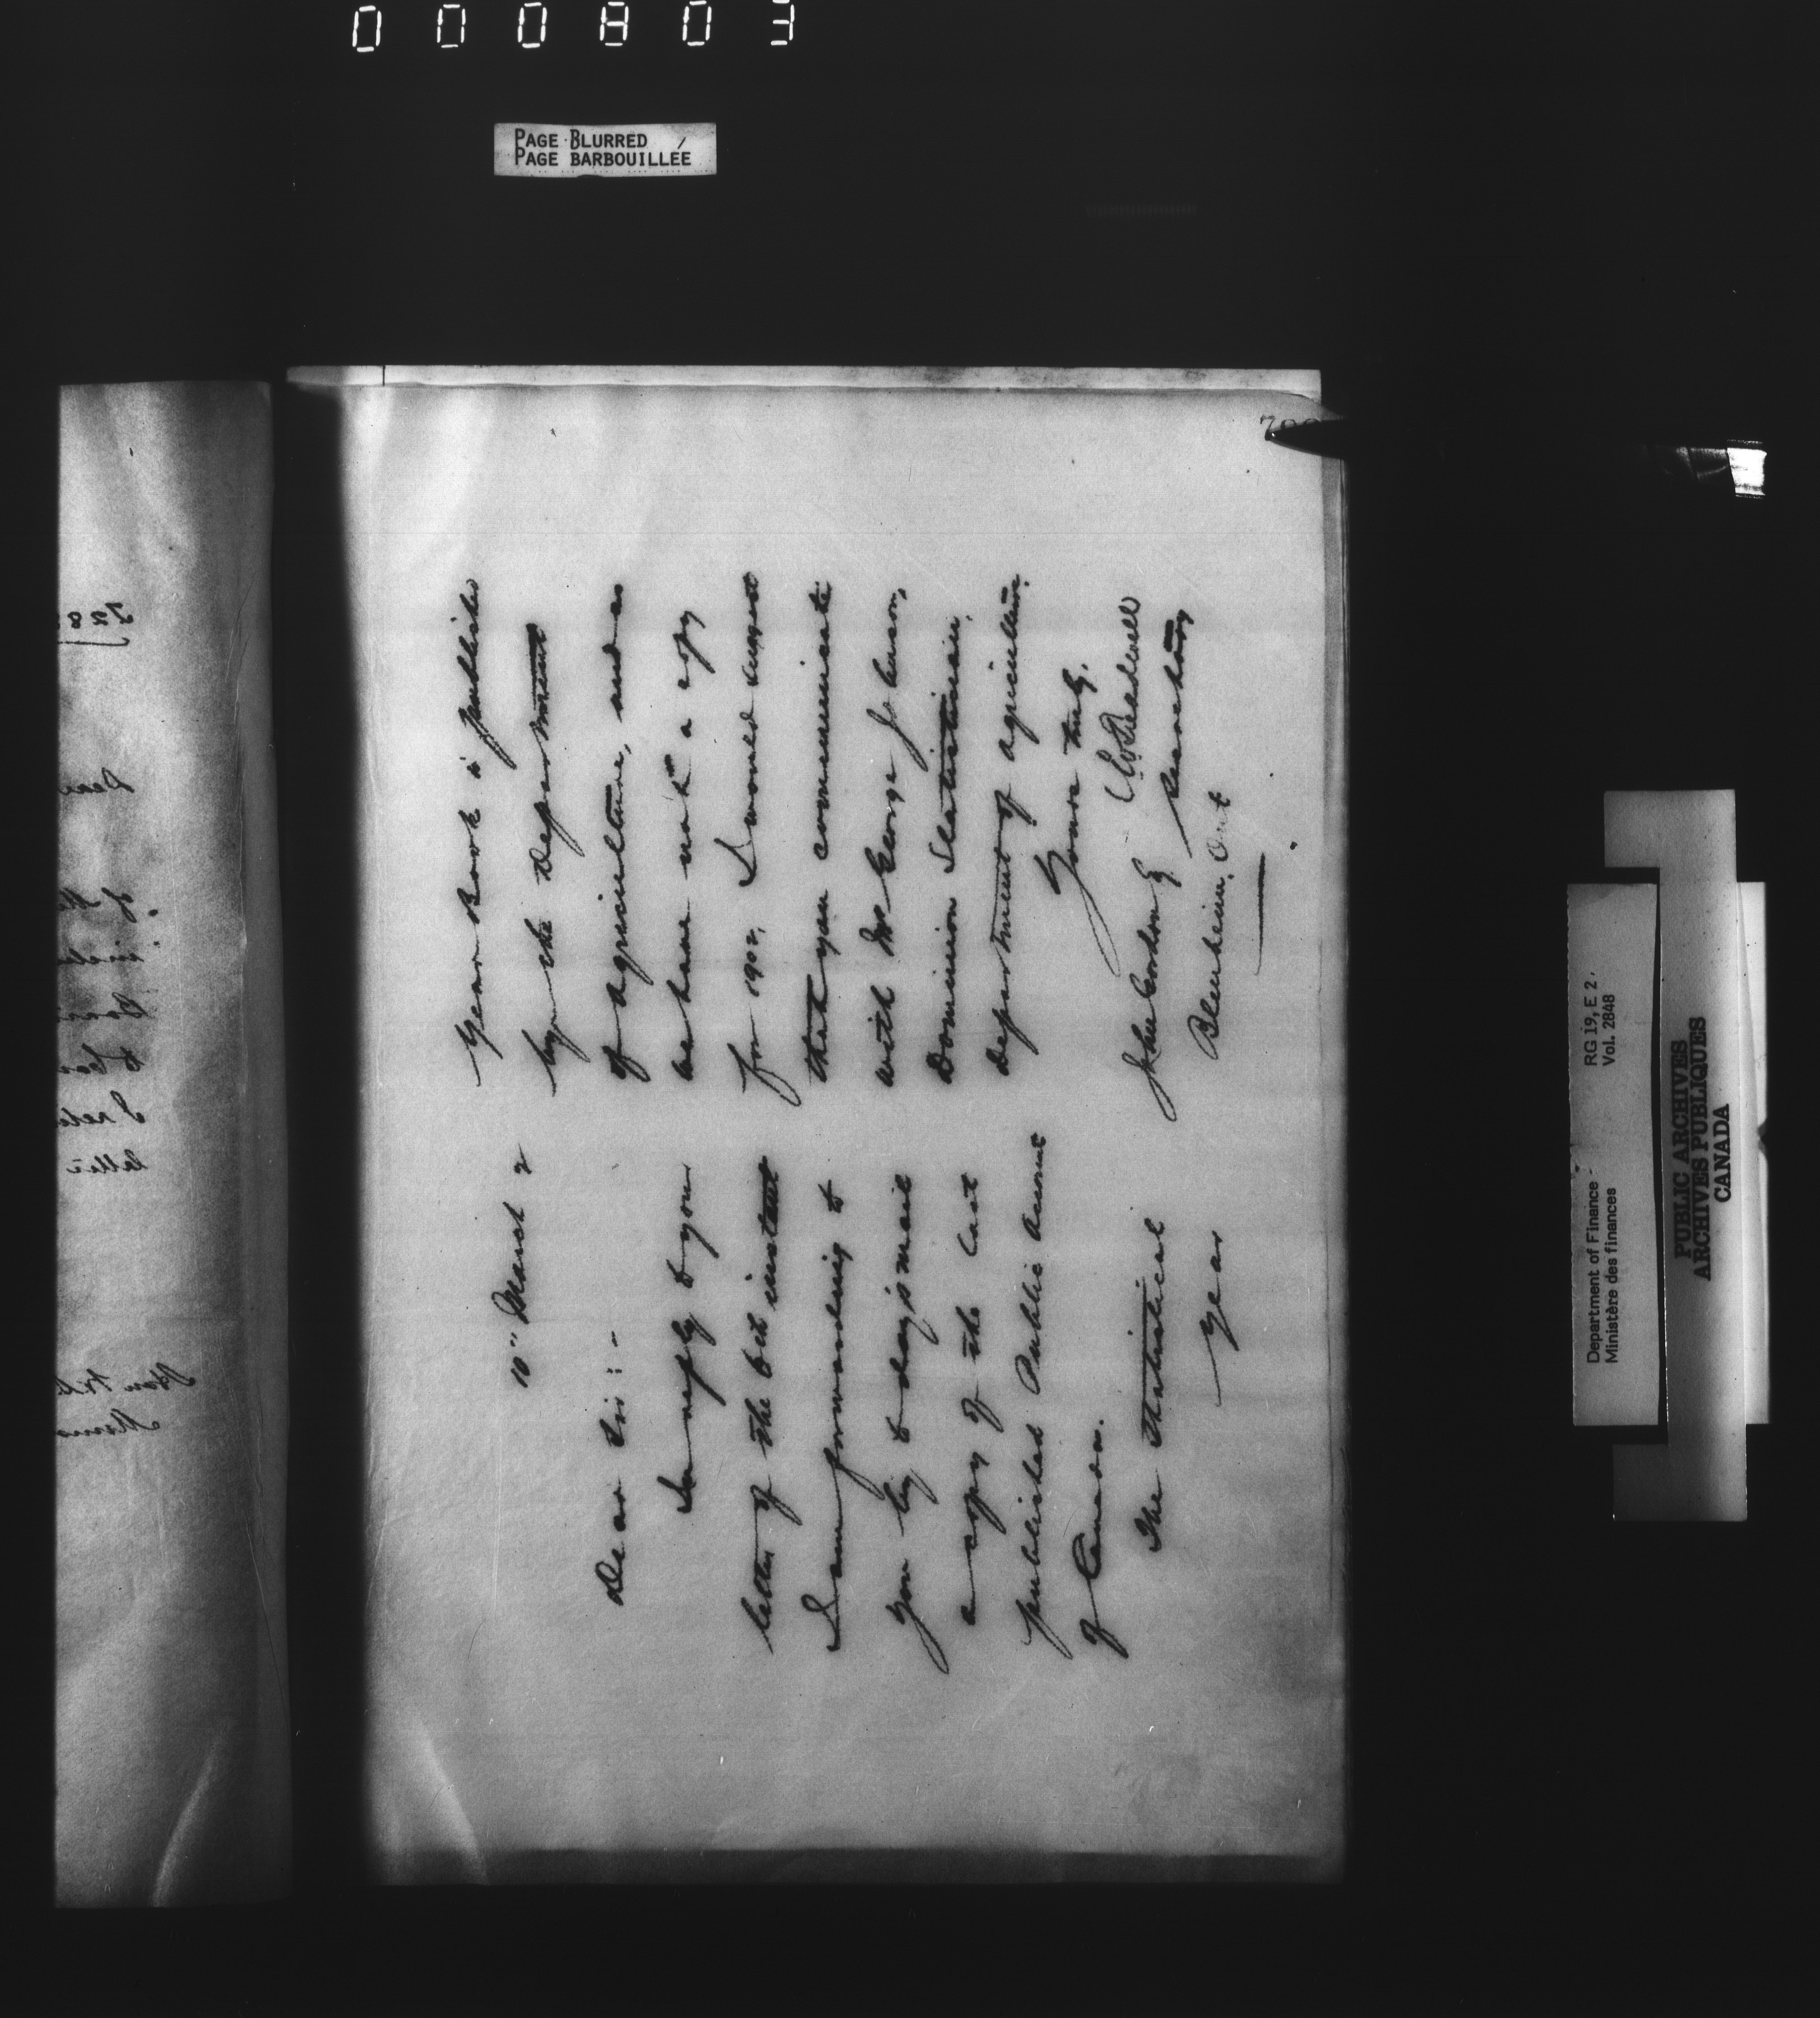 000803
PAGE BLURRED
PAGE BARBOUILLÉE
10" March 2
Dear Sir :-
In reply to your
letter of the 6th instant
I am forwarding to
you by to day's mail
a copy of the last
published Public Accounts
of Canada.
The Statistical
Year
Year Book is published
by the Department
of Agriculture, and as
we have not a copy
for 1902, I would suggest
that you communicate
with Mr George Johnson,
Dominion Statistician,
Department of Agriculture.
Yours truly,
Secretary
John
Blenheim, Ont
Department of Finance -
Ministère des finances
RG 19, E 2,
Vol. 2848
PUBLIC ARCHIVES
ARCHIVES PUBLIQUES
CANADA